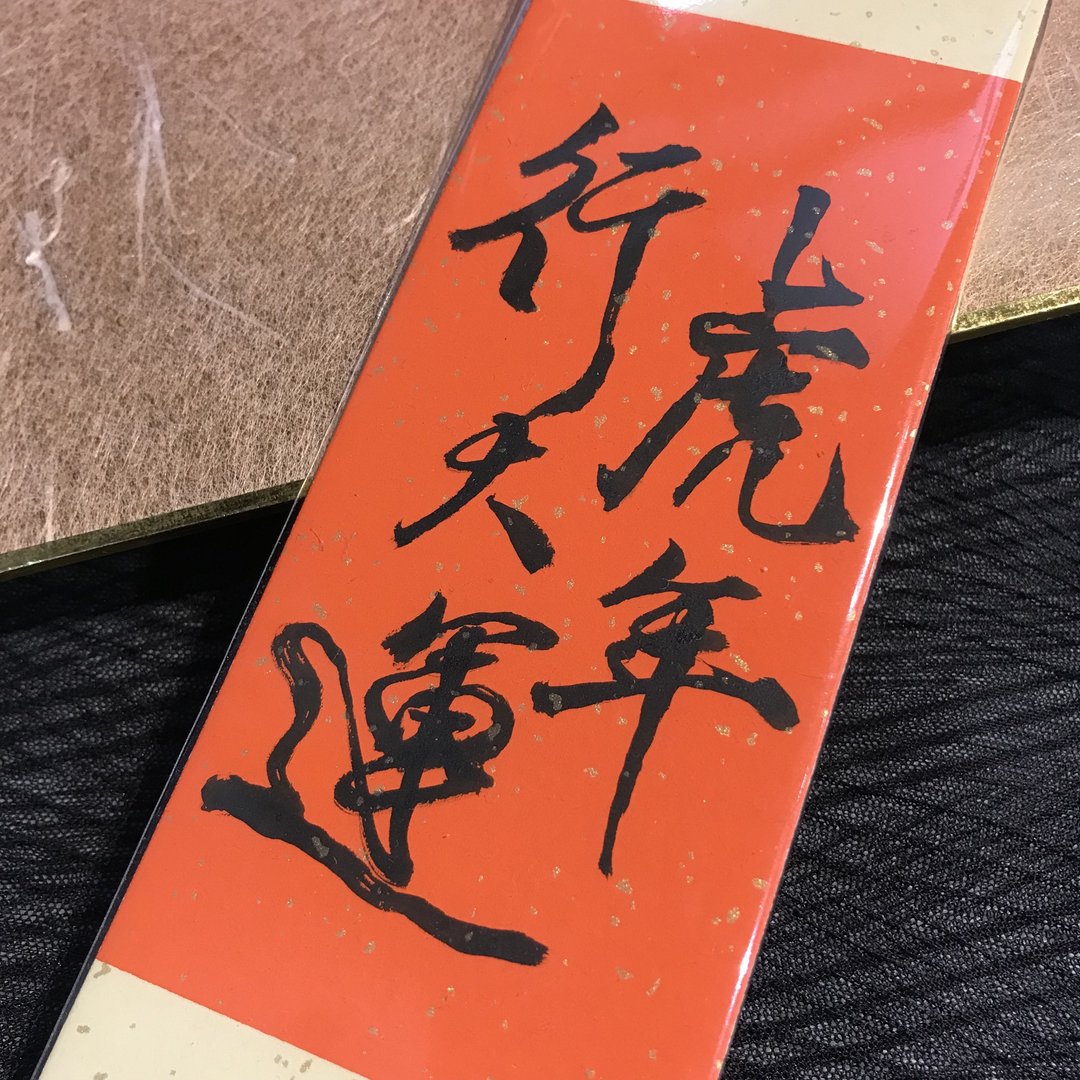 虎年
行大運